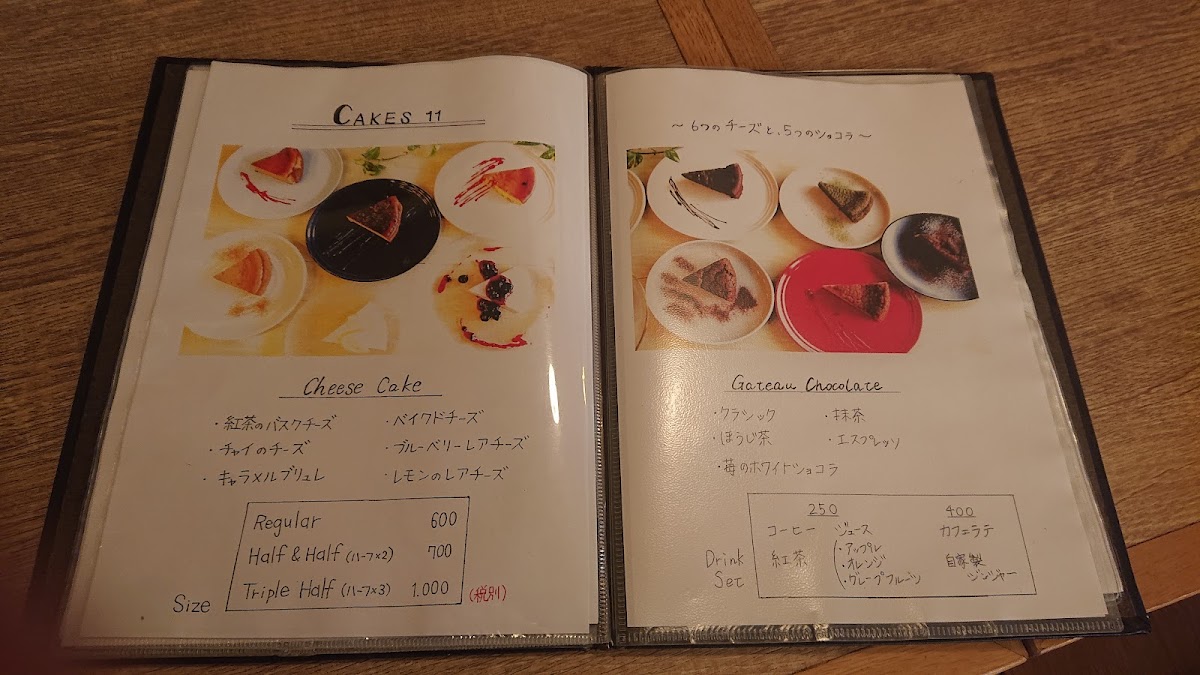 CAKES 11
Cheese Cake
・紅茶のバスクチーズ ・ベイクドチーズ
・チャイのチーズ ・ブルーベリーレアチーズ
・キャラメルブリュレ ・レモンのレアチーズ
Regular 600
Half & Half (ハーフ×2) 700
Triple Half (ハーフ×3) 1.000 (税別)
Size
～6つのチーズと、5つのショコラ～
Gateau Chocolate
・クラシック ・抹茶
・ほうじ茶 ・エスプレッソ
・苺のホワイトショコラ
250 400
コーヒー ジュース カフェラテ
紅茶 (・アップル 自家製
・オレンジ ジンジャー
・グレープフルーツ
Drink
Set